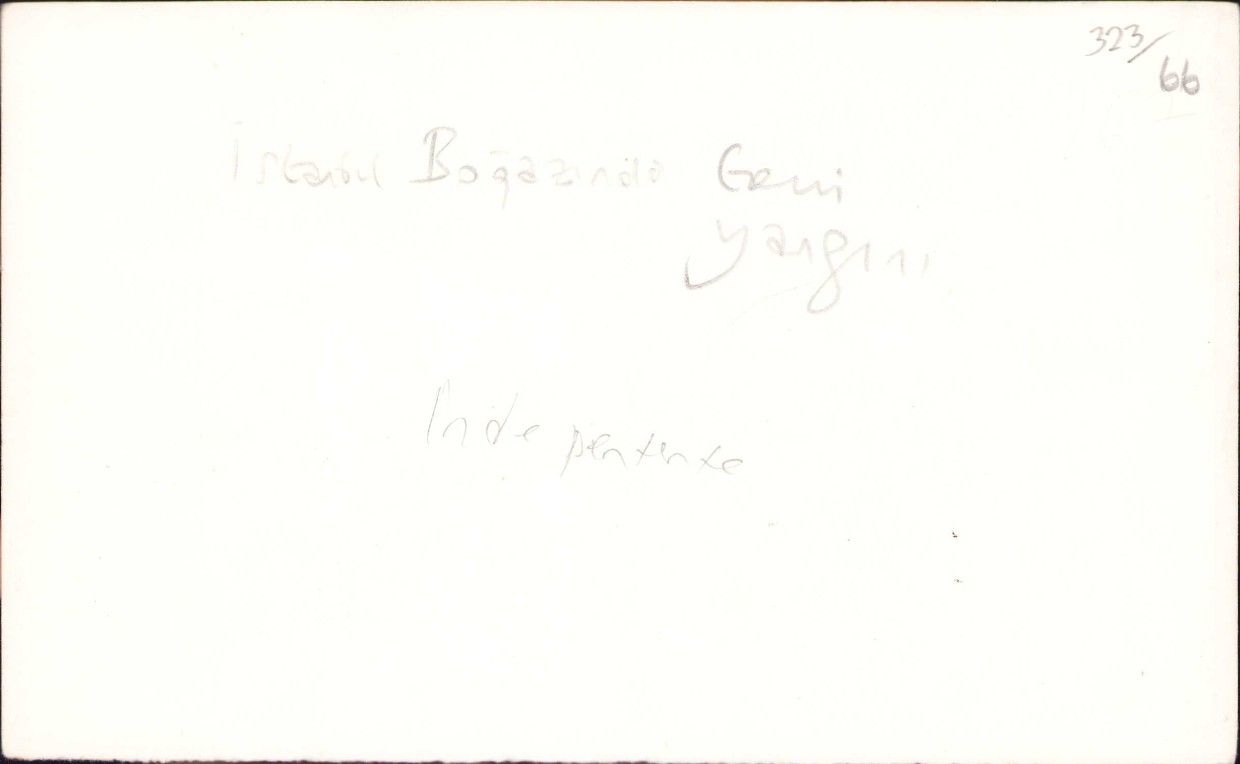 323/
66
İstanbul Boğazında Gemi
Yangını
Independente